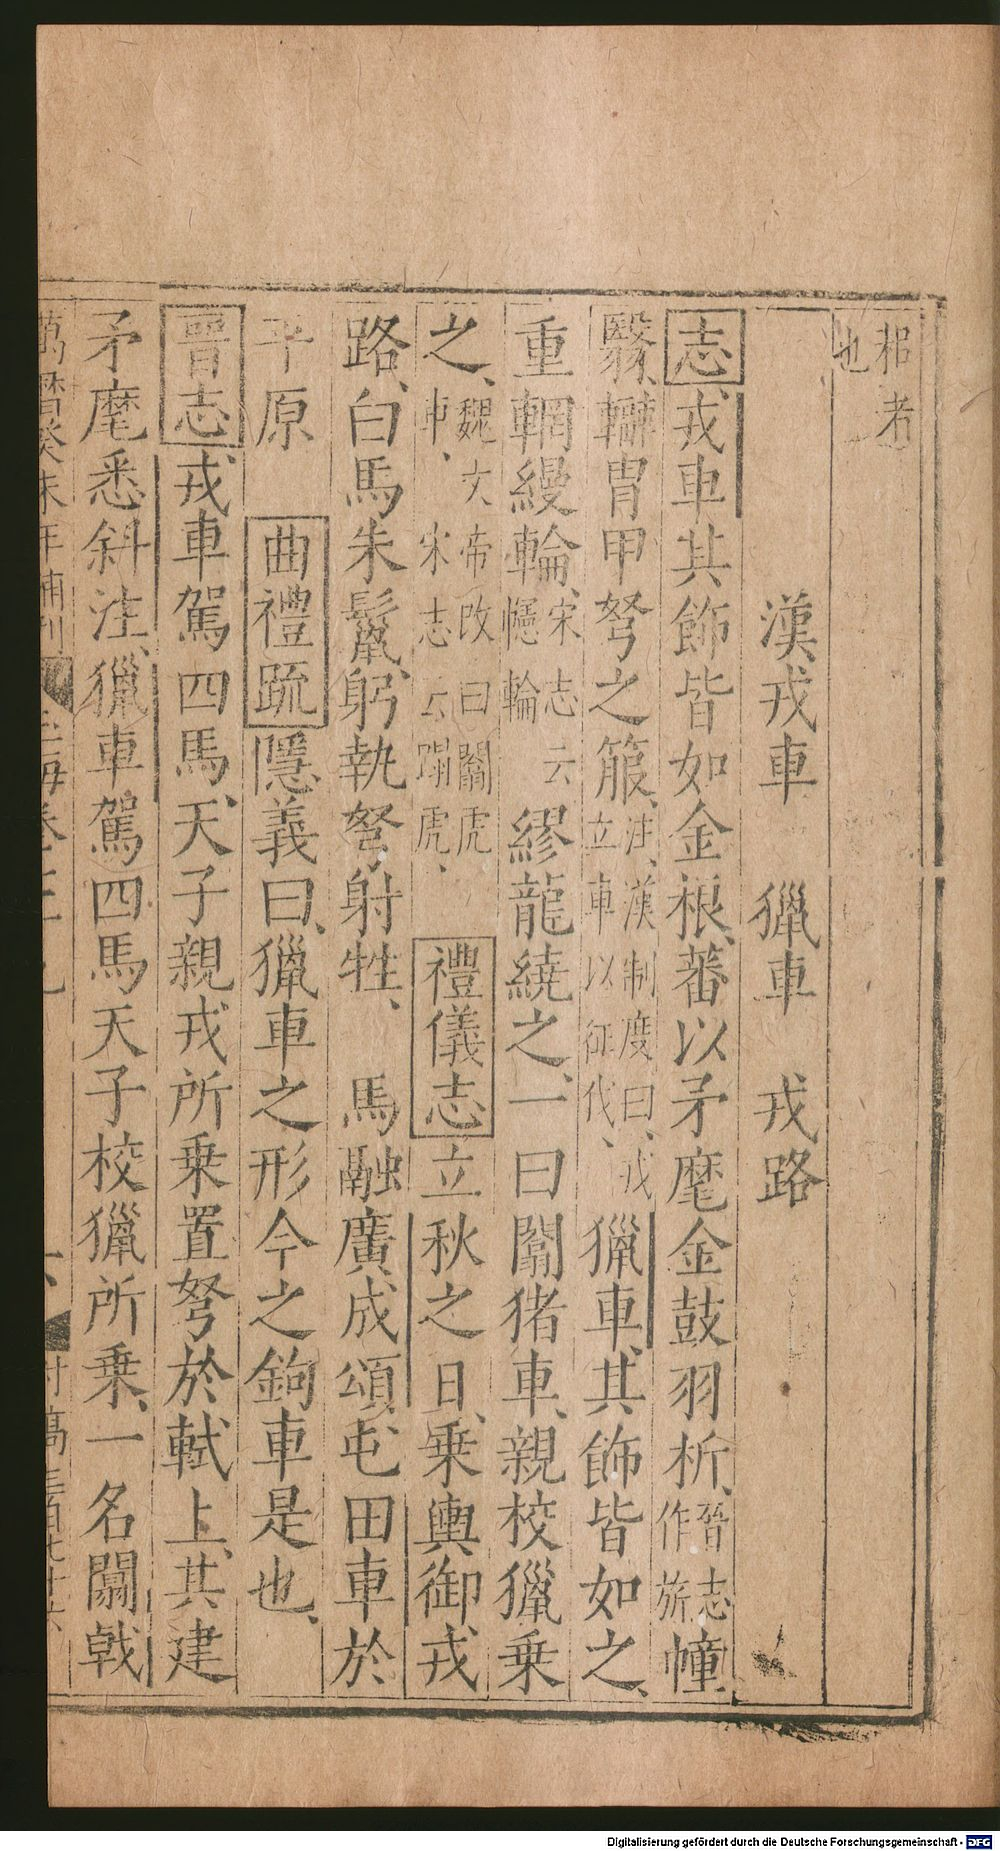 耜者
也
漢戎車　獵車　戎路
志戎車其飾皆如金根蕃以矛麾金鼓羽析晉志作旂幢
翳轓冑甲弩之箙注漢制度曰戎立車以征伐獵車其飾皆如之
重輞縵輪宋志云幰輪繆龍繞之一曰闟猪車親校獵乘
之魏文帝改曰闟虎車宋志云蹋虎禮儀志立秋之日乘輿御戎
路白馬朱鬣躬執弩射牲　馬融廣成頌屯田車於
平原　曲禮疏隱義曰獵車之形今之鉤車是也
晉志戎車駕四馬天子親戎所乘置弩於軾上其建
矛麾悉斜注獵車駕四馬天子校獵所乘一名闟戟
萬曆癸未年補刊
Digitalisierung gefördert durch die Deutsche Forschungsgemeinschaft - DFG